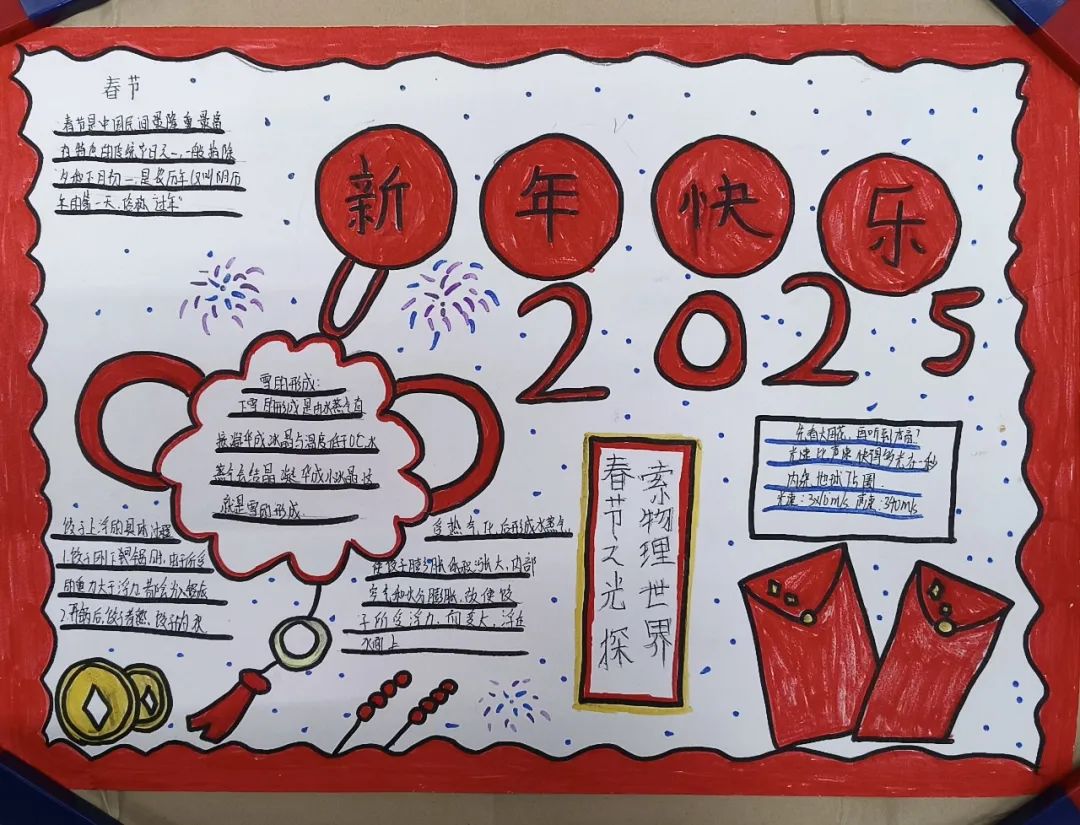 春节
春节是中国民间最隆重最富
有特色的传统节日之一,一般指除
夕和正月初一,是农历年
年的第一天,俗称"过年"
新年快乐
2025
雪的形成:
下雪的形成是由水蒸气直
接凝华成冰晶与温度低于0℃水
蒸气会结晶凝华成小冰晶这
就是雪的形成
先看大烟花,再听到声音?
光速比声速快得多光在一秒
内绕地球7.5圈
光速:3×10⁸m/s 声速:340m/s
春节之光 探
索物理世界
饺子上浮的具体过程
1.饺子刚下到锅时,由于所受
的重力大于浮力都会沉入锅底
2.开锅后,饺子煮熟,饺子内水
受热气化后形成水蒸气
使饺子膨胀体积涨大,内部
空气和水分膨胀,致使饺
子所受浮力,而变大,浮在
水面上